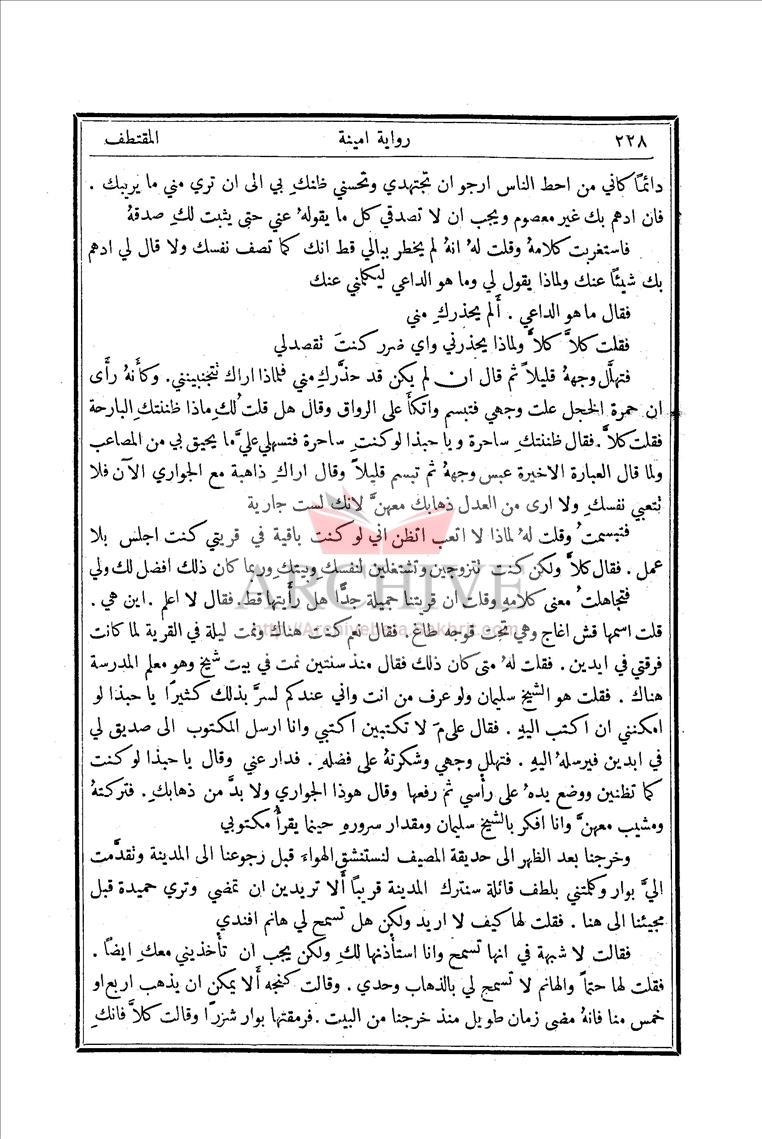 ٢٢٨ رواية امينة المقتطف
دائمًا كاني من احط الناس ارجو ان تجتهدي وتحسني ظانكِ بي الى ان تري مني ما يريبك .
فان ادهم بك غير معصوم ويجب ان لا تصدقي كل ما يقولهُ عني حتى يثبت لكِ صدقهُ
فاستغربت كلامهُ وقلت لهُ انهُ لم يخطر ببالي قط انك كما تصف نفسك ولا قال لي ادهم
بك شيئًا عنك ولماذا يقول لي وما هو الداعي ليكلمني عنك
فقال ما هو الداعي . أَلم يحذركِ مني
فقلت كلاَّ كلاَّ ولماذا يحذرني واي ضرر كنتَ تقصد لي
فتهلَّل وجههُ قليلاً ثم قال ان لم يكن قد حذَّركِ مني فلماذا اراك تتجنبينني. وكأَنهُ رأَى
ان حمرة الخجل علت وجهي فتبسم واتكأَ على الرواق وقال هل قلت لكِ ماذا ظننتك البارحة
فقلت كلاَّ. فقال ظننتكِ ساحرة ويا حبذا لو كنتِ ساحرة فتسهلي عليَّ ما يحيق بي من المصاعب
ولما قال العبارة الاخيرة عبس وجههُ ثم تبسم قليلاً وقال اراكِ ذاهبة مع الجواري الآن فلا
تتعبي نفسكِ ولا ارى من العدل ذهابك معهنَّ لانك لست جارية
فتبسمتُ وقلت لهُ لماذا لا اتعب اتظن اني لو كنت باقية في قريتي كنت اجلس بلا
عمل . فقال كلاَّ ولكن كنت تتزوجين وتشتغلين لنفسكِ وبيتكِ وربما كان ذلك افضل لك ولي
فتجاهلتُ معنى كلامهِ وقلت ان قريتنا جميلة جدًّا هل رأَيتها قط. فقال لا اعلم . اين هي .
قلت اسمها قش اغاج وهي تحت قوجه طاغ. فقال نعم كنت هناك ونمت ليلة في القرية لما كانت
فرقتي في ايدين . فقلت لهُ متى كان ذلك فقال منذ سنتين نمت في بيت شيخ وهو معلم المدرسة
هناك . فقلت هو الشيخ سليمان ولو عرف من انت واني عندكم لسرَّ بذلك كثيرًا يا حبذا لو
امكنني ان اكتب اليهِ . فقال علىمَ لا تكتبين اكتبي وانا ارسل المكتوب الى صديق لي
في ايدين فيرسلهُ اليهِ . فتهلل وجهي وشكرتهُ على فضلهِ . فدار عني وقال يا حبذا لو كنت
كما تظنين ووضع يدهُ على رأسي ثم رفعها وقال هوذا الجواري ولا بدَّ من ذهابك . فتركتهُ
ومشيب معهنَّ وانا افكر بالشيخ سليمان ومقدار سروره حينما يقرأُ مكتوبي
وخرجنا بعد الظهر الى حديقة المصيف لنستنشق الهواءَ قبل رجوعنا الى المدينة وتقدَّمت
اليَّ بوار وكلمتني بلطف قائلة سنترك المدينة قريبًا أَلا تريدين ان تمضي وتري حميدة قبل
مجيئنا الى هنا . فقلت لها كيف لا اريد ولكن هل تسمح لي هانم افندي
فقالت لا شبهة في انها تسمح وانا استأذنها لكِ ولكن يجب ان تأخذيني معكِ ايضاً .
فقلت لها حتماً والهانم لا تسمح لي بالذهاب وحدي . وقالت كنجه أَلا يمكن ان يذهب اربع او
خمس منا فانهُ مضى زمان طويل منذ خرجنا من البيت . فرمقتها بوار شزرًا وقالت كلاَّ فانكِ
ARCHIVE
http://Archivebeta.Sakhrit.com